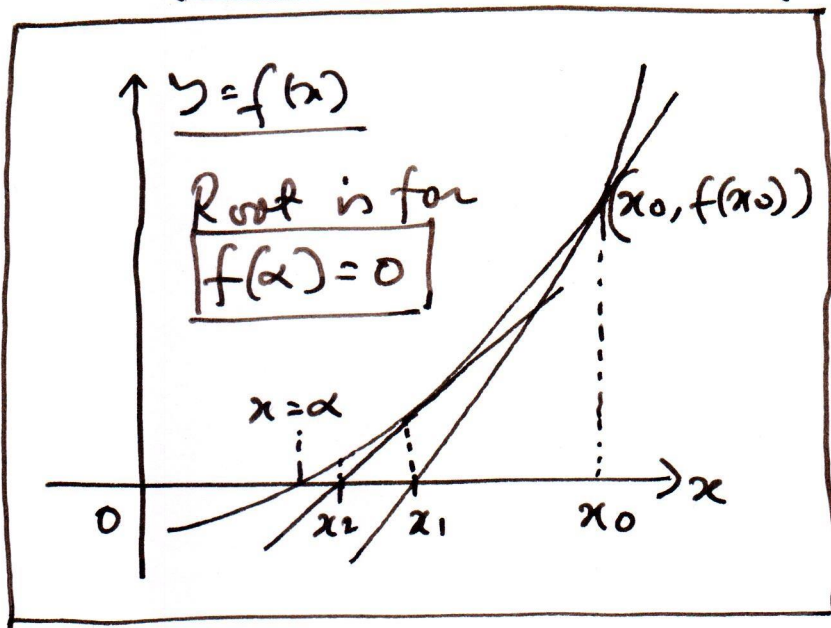 y=f(x)
Root is for
f(α)=0
(x0, f(x0))
x=α
0
x2
x1
x0
x